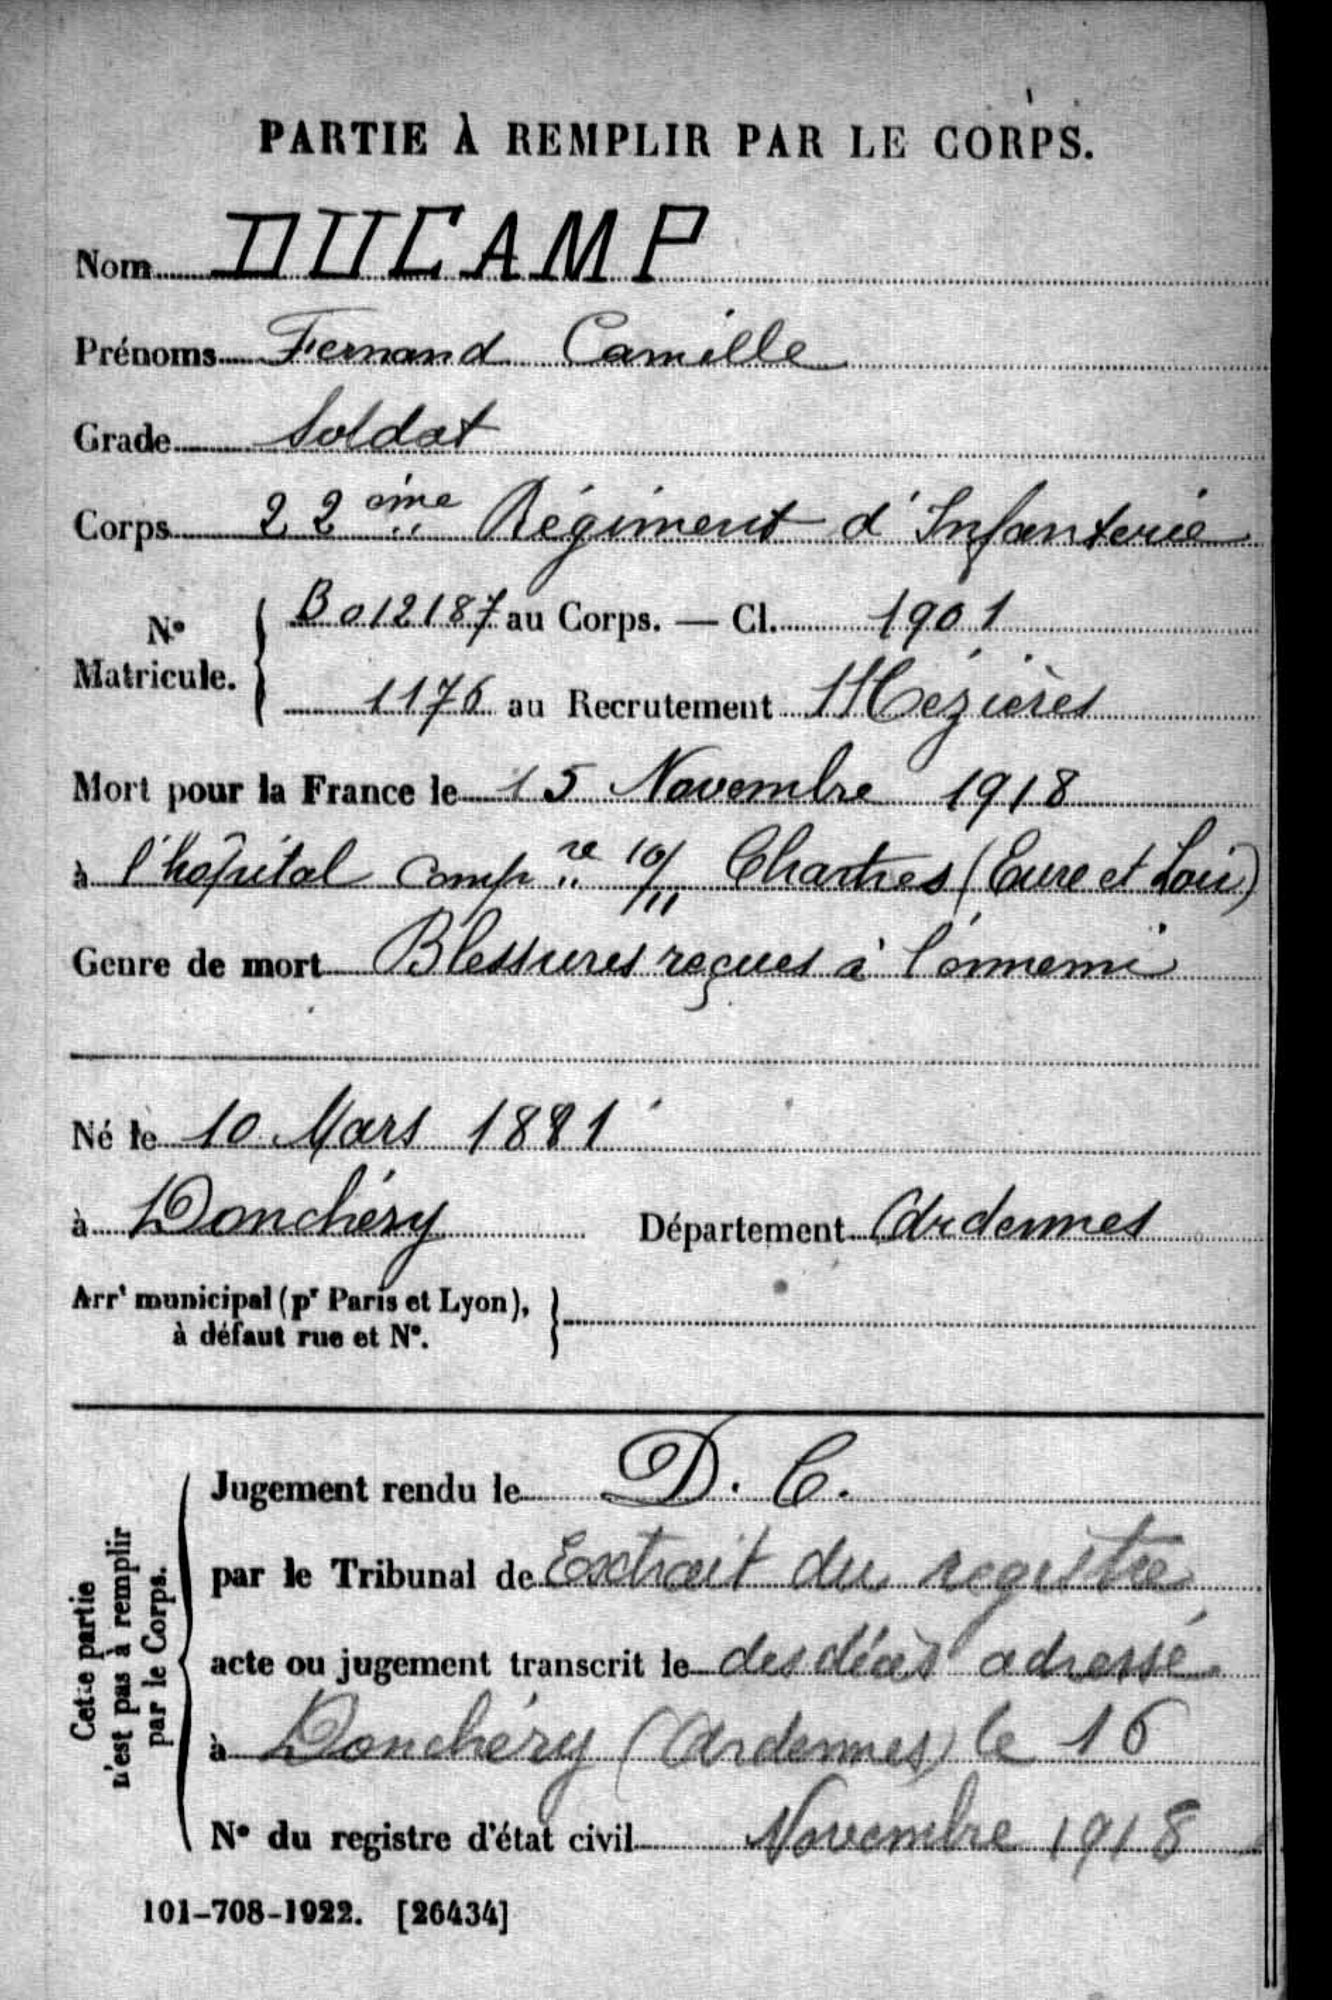 PARTIE À REMPLIR PAR LE CORPS.
Nom DUCAMP
Prénoms Fernand Camille
Grade Soldat
Corps 22ème Régiment d'Infanterie
N° Matricule. { B012187 au Corps. — Cl. 1901
1176 au Recrutement Mézières
Mort pour la France le 15 Novembre 1918
à l'hôpital compre 10/11 Chartres (Eure et Loir)
Genre de mort Blessures reçues à l'ennemi
Né le 10 Mars 1881
à Donchéry Département Ardennes
Arrt municipal (pr Paris et Lyon),
à défaut rue et N°.
Cette partie
n'est pas à remplir
par le Corps.
Jugement rendu le D. C.
par le Tribunal de Extrait du registre
acte ou jugement transcrit le des décès adressé
à Donchéry (Ardennes) le 16
N° du registre d'état civil Novembre 1918
101-708-1922. [26434]